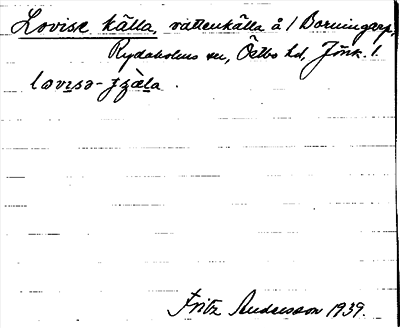 Lovise källa, vattenkälla å 1 Borningarp,
Rydaholms sn, Östbo hd, Jönk. l.
lovisə-
Fritz Andersson 1939.